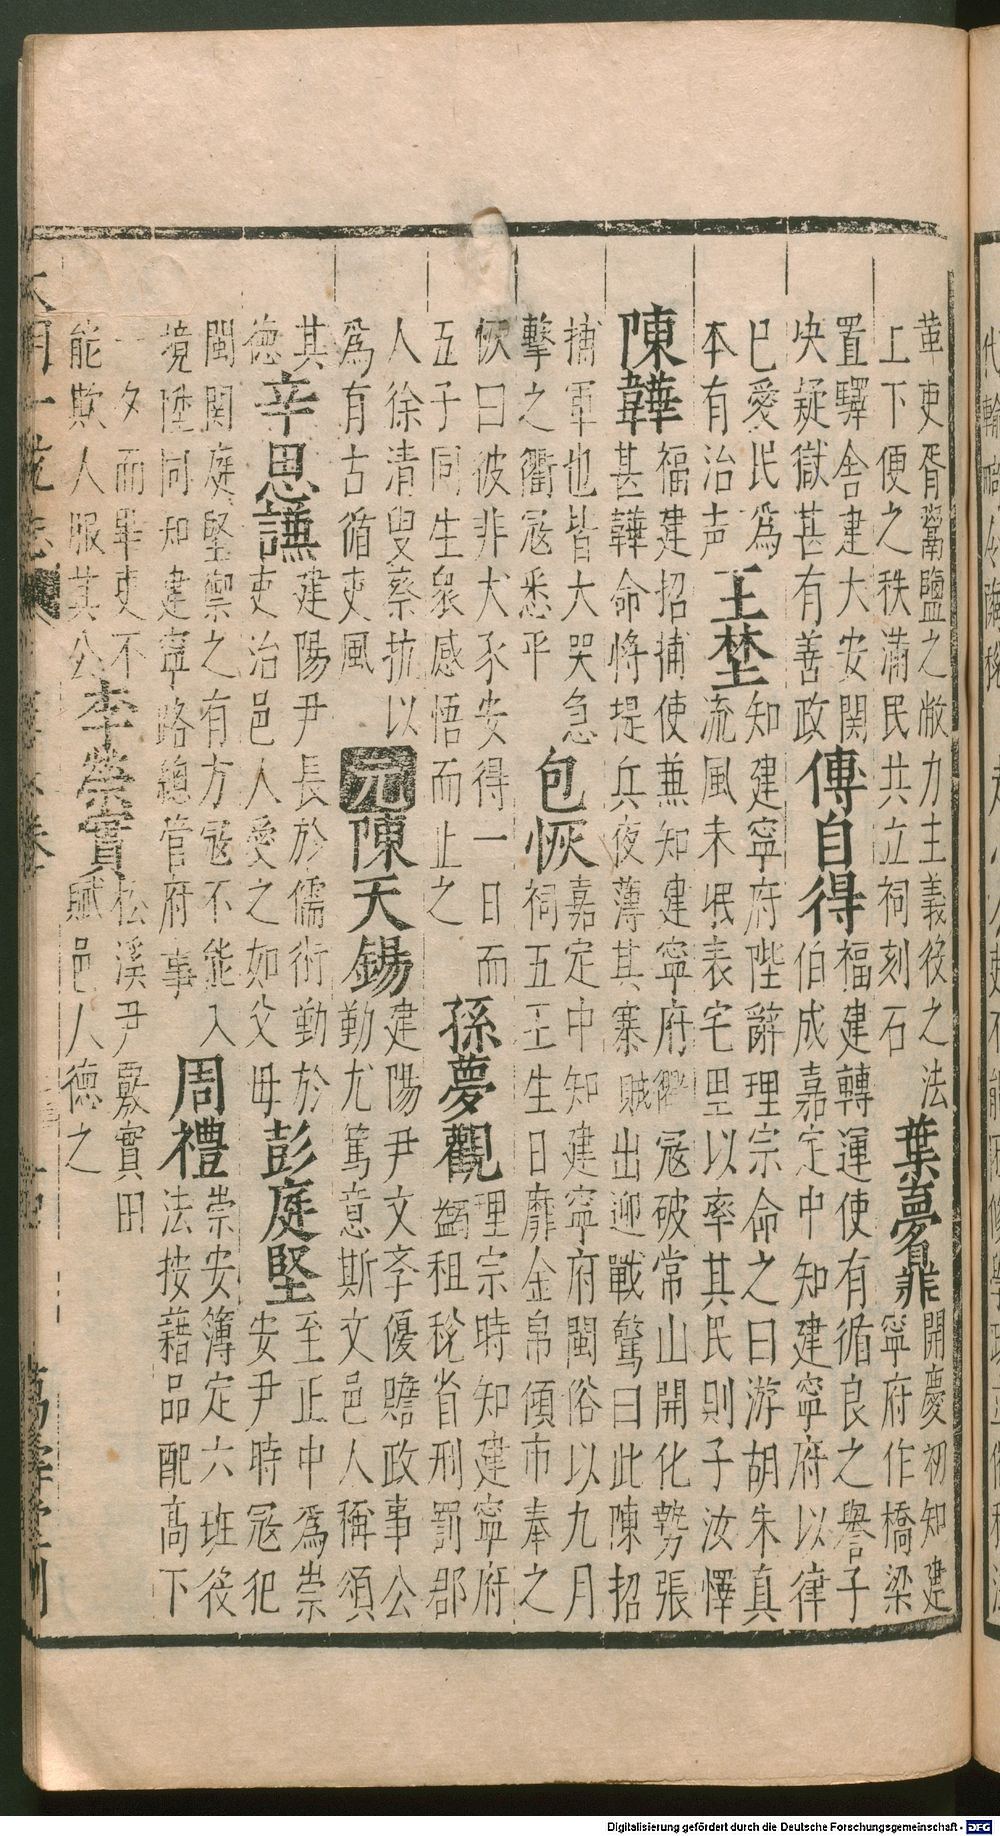 革吏胥鬻鹽之敝力主義役之法葉夢鼎開慶初知建
上下便之秩滿民共立祠刻石寧府作橋梁
置驛舍建大安関傳自得福建轉運使有循良之譽子
央疑獄甚有善政伯成嘉定中知建寧府以律
已愛民爲王埜知建寧府陛辭理宗命之曰游胡朱真
本有治声流風未泯表宅里以率其民則子汝懌
陳韡福建招捕使兼知建寧府衢寇破常山開化勢張
甚韡命將提兵夜薄其寨賊出迎戰驚曰此陳招
捕軍也皆大哭急包恢嘉定中知建寧府閩俗以九月
擊之衢寇悉平祠五王生日靡金帛傾市奉之
恢曰彼非犬豕安得一日而孫夢觀理宗時知建寧府
五子同生衆感悟而止之蠲租稅省刑罰郡
人徐清叟蔡抗以元陳天錫建陽尹文李優贍政事公
爲有古循吏風勤尤篤意斯文邑人稱頌
其辛思謙建陽尹長於儒術勤於彭庭堅至正中爲崇
德吏治邑人愛之如父毋安尹時寇犯
閩関庭堅禦之有方寇不能入周禮崇安簿定六班役
境陞同知建寧路總管府事法按藉品配高下
一夕而畢吏不李榮實松溪尹覈實田
能欺人服其公賦邑人德之
大明一
萬壽堂刊
Digitalisierung gefördert durch die Deutsche Forschungsgemeinschaft - DFG